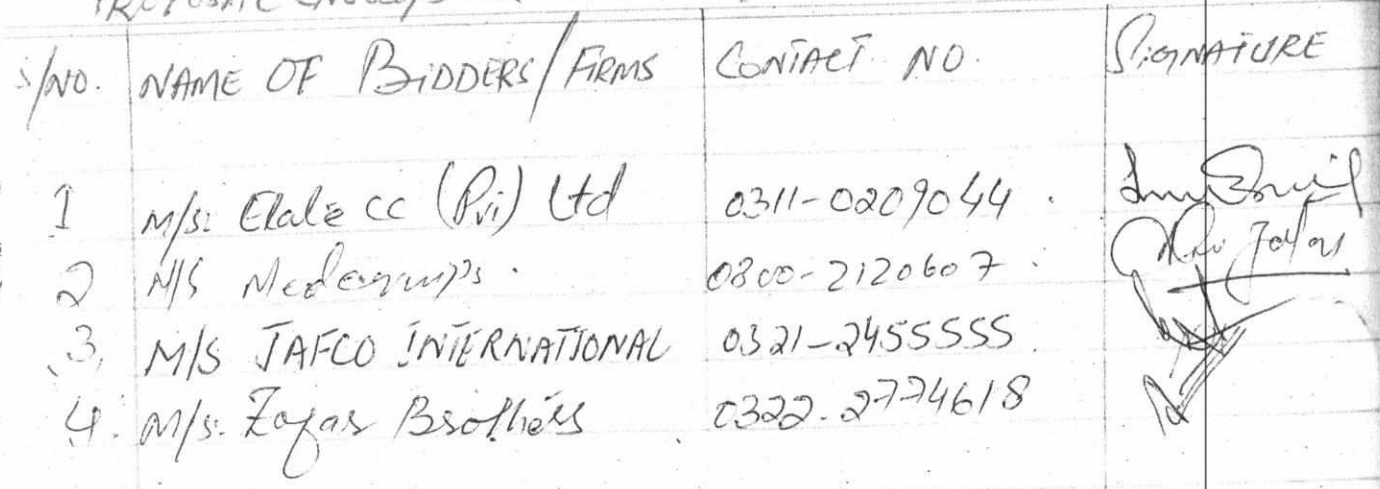 S/NO. NAME OF BIDDERS/FIRMS CONTACT NO. SIGNATURE
1 M/s. Elate cc (Pvi) Ltd 0311-0209044
2 M/S 0300-2120607
3. M/S JAFCO INTERNATIONAL 0321-2455555
4. M/s. Zafar Brothers 0322-2774618